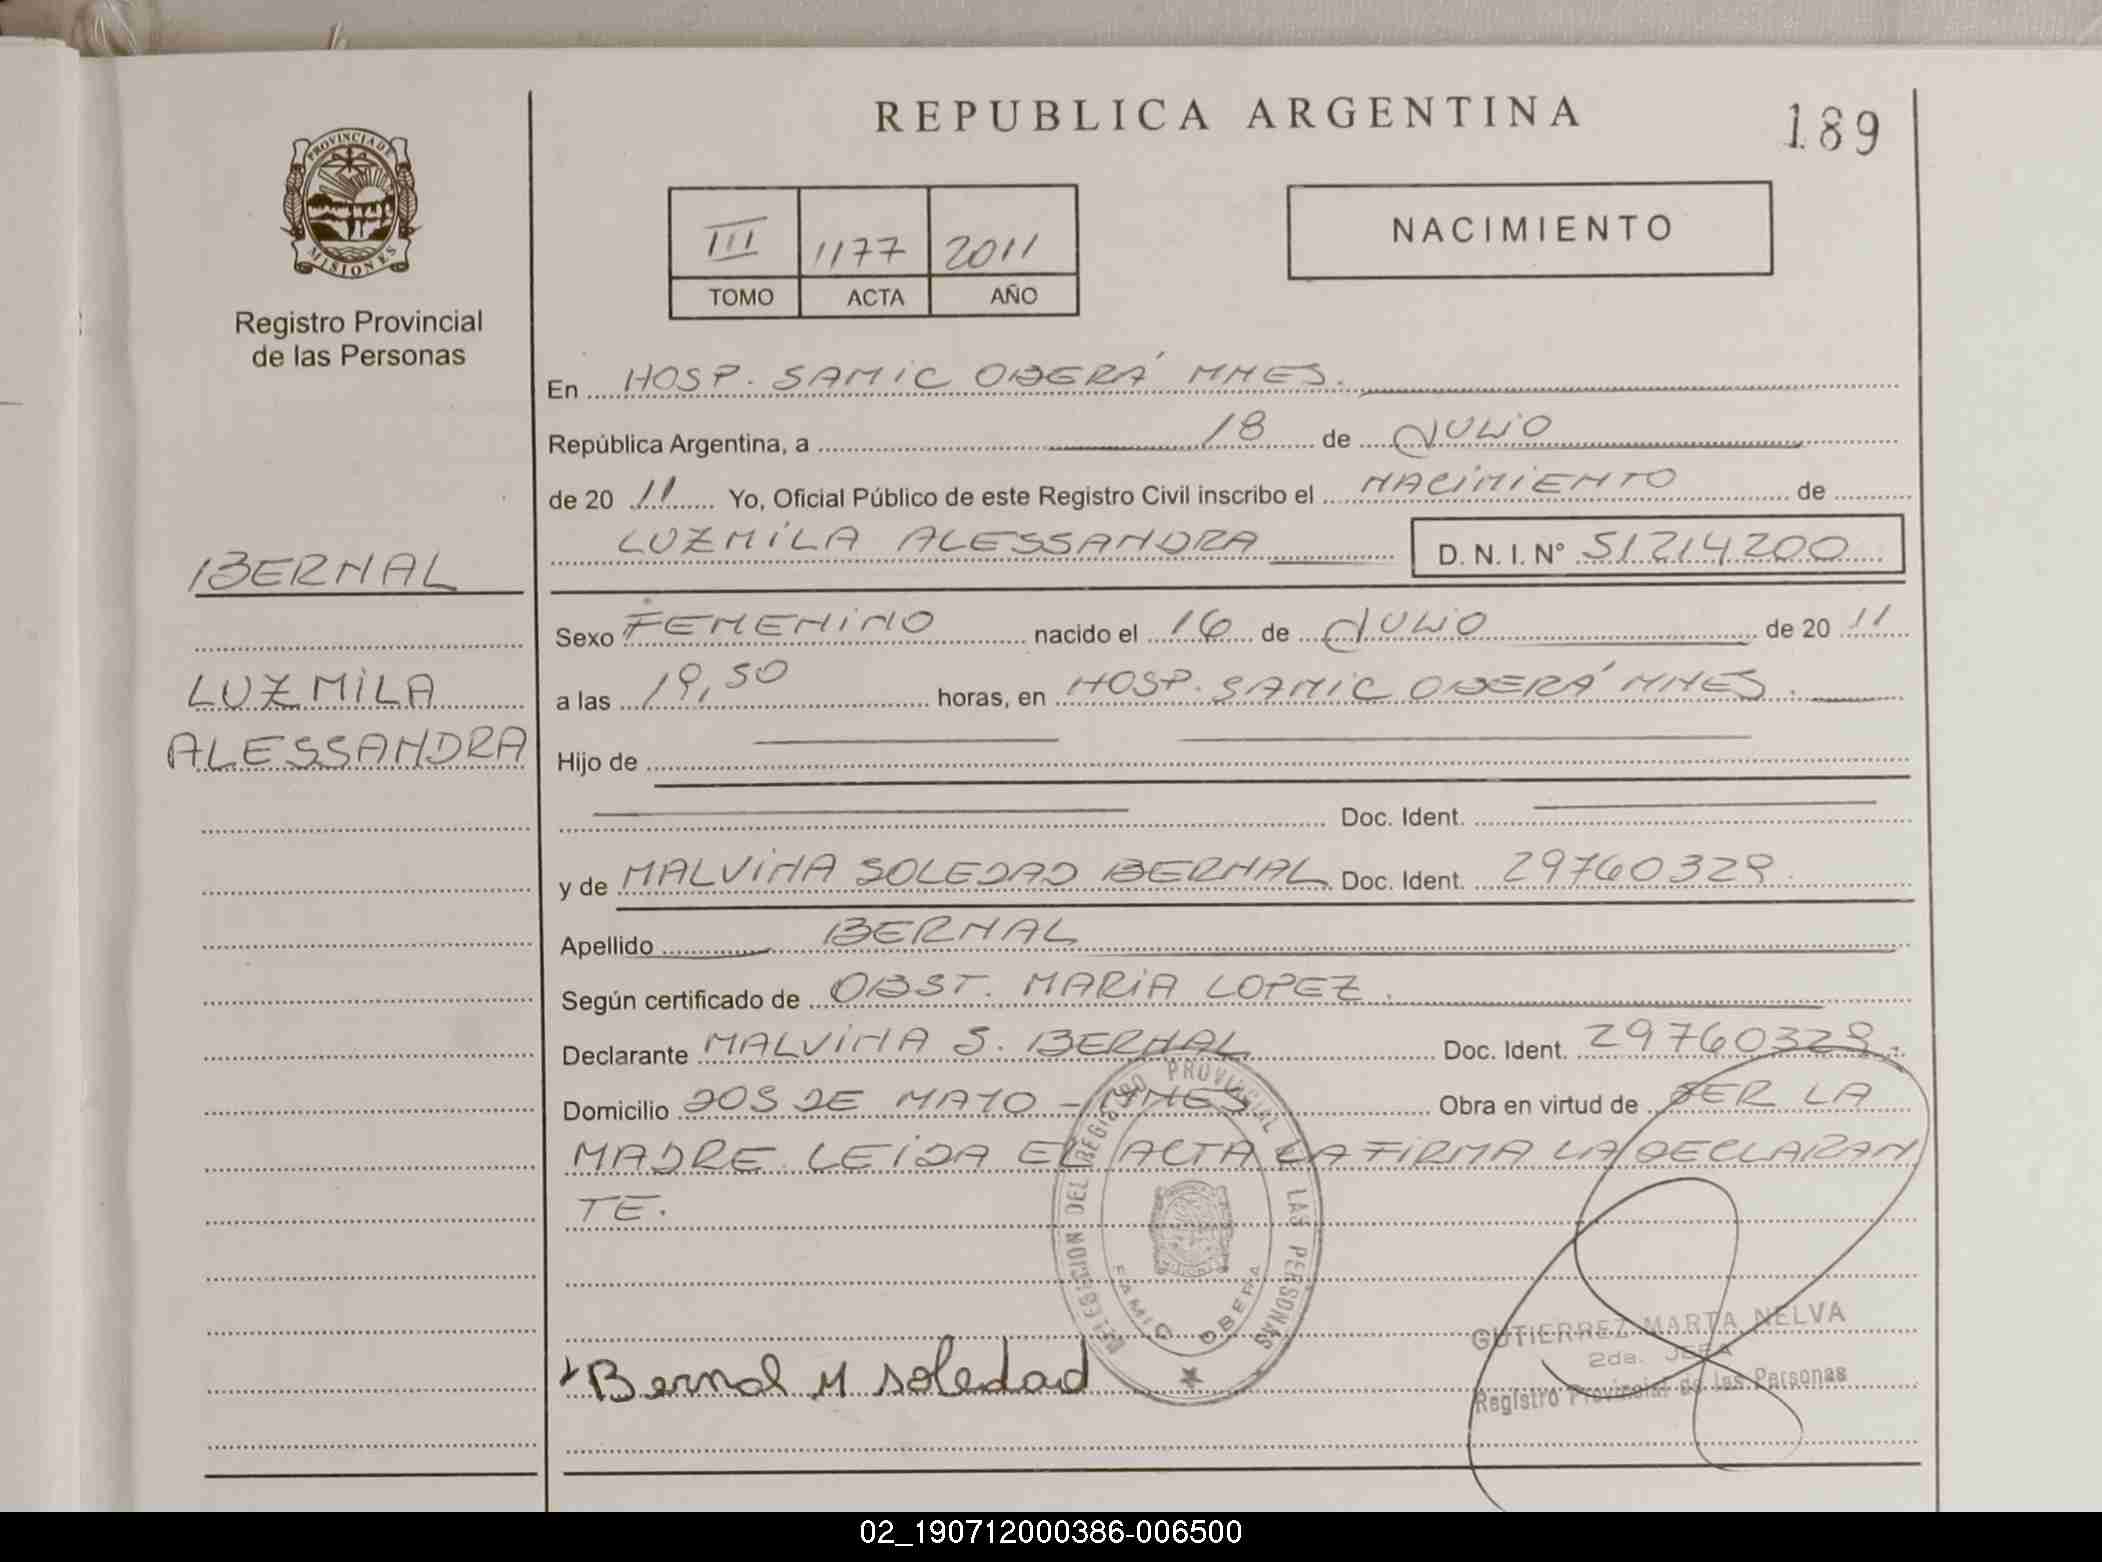 REPUBLICA ARGENTINA
189
PROVINCIA DE
MISIONES
Registro Provincial
de las Personas
III 1177 2011
TOMO ACTA AÑO
NACIMIENTO
En HOSP. SAMIC OBERÁ MNES.
República Argentina, a 18 de JULIO
de 20 11 Yo, Oficial Público de este Registro Civil inscribo el NACIMIENTO de
LUZMILA ALESSANDRA D. N. I. N° 51214200
BERNAL
LUZMILA
ALESSANDRA
Sexo FEMENINO nacido el 16 de JULIO de 20 11
a las 19,50 horas, en HOSP. SAMIC OBERÁ MNES.
Hijo de
Doc. Ident.
y de MALVINA SOLEDAD BERNAL Doc. Ident. 29760329.
Apellido BERNAL
Según certificado de OBST. MARIA LOPEZ.
Declarante MALVINA S. BERNAL Doc. Ident. 29760329.
Domicilio DOS DE MAYO - MNES Obra en virtud de SER LA
MADRE LEIDA EL ACTA LA FIRMA LA DECLARAN
TE.
DELEGACION DEL REGISTRO PROVINCIAL DE LAS PERSONAS
SAMIC OBERA
Bernal M Soledad
GUTIERREZ MARTA NELVA
2da. JEFA
Registro Provincial de las Personas
02_190712000386-006500